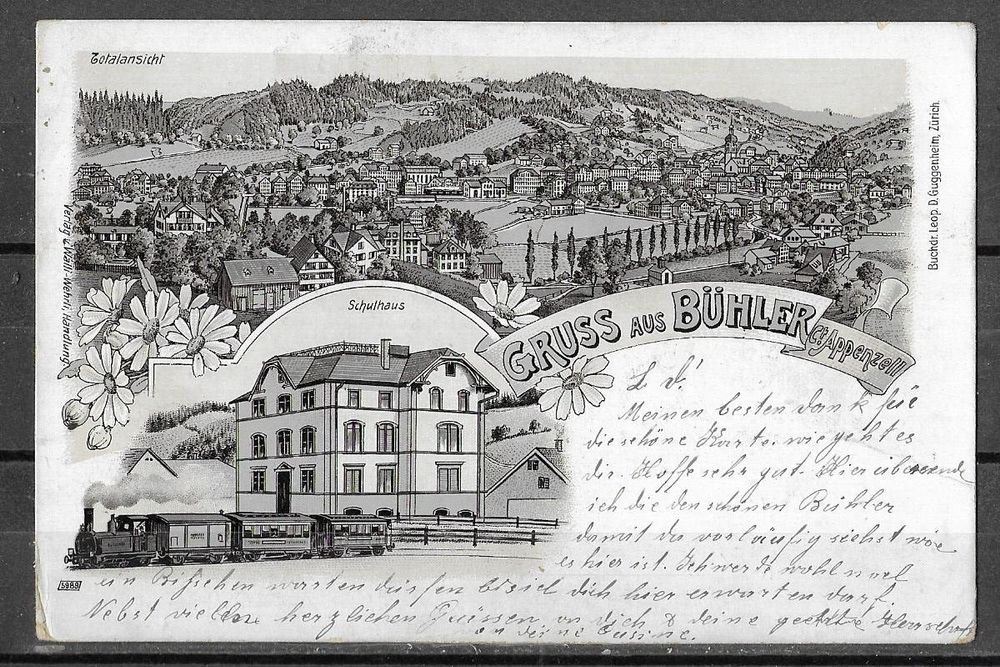 Totalansicht
Buchdr. Leop. D. Guggenheim, Zürich.
Verlag v. Wälli-Wehrli, Handlung
Schulhaus
GRUSS AUS BÜHLER Ct. Appenzell
L d!
Meinen besten dank für
die schöne Karte. wie geht es
dir. Hoffe sehr gut. Hier übersende
ich die den schönen Bühler
damit du vorläufig siehst wie
es hier ist. Ich werde wohl noch
ein Bisschen warten dürfen bis ich dich hier erwarten darf.
Nebst vielen herzlichen Grüssen an dich & deine geehrte Herrschaft
5989
an deine Cusine.